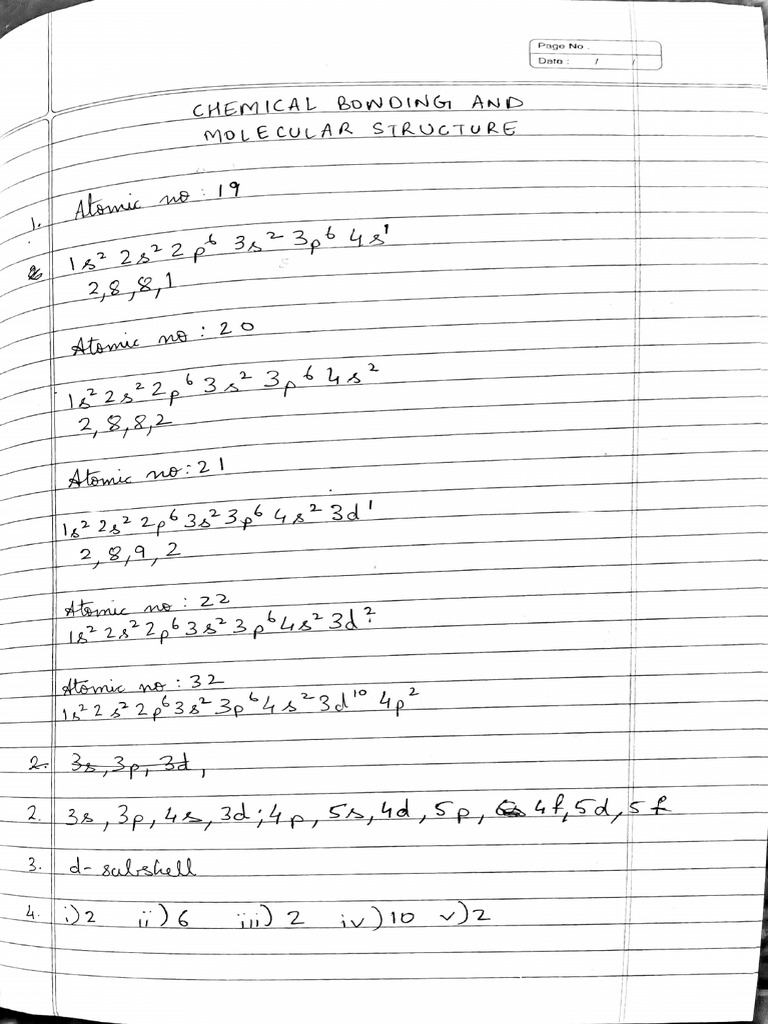 Page No.
Date : / /
CHEMICAL BONDING AND
MOLECULAR STRUCTURE
1. Atomic no : 19
1s² 2s² 2p⁶ 3s² 3p⁶ 4s¹
2,8,8,1
Atomic no : 20
1s² 2s² 2p⁶ 3s² 3p⁶ 4s²
2,8,8,2
Atomic no : 21
1s² 2s² 2p⁶ 3s² 3p⁶ 4s² 3d¹
2,8,9,2
Atomic no : 22
1s² 2s² 2p⁶ 3s² 3p⁶ 4s² 3d²
Atomic no : 32
1s² 2s² 2p⁶ 3s² 3p⁶ 4s² 3d¹⁰ 4p²
2. 3s, 3p, 3d,
2. 3s, 3p, 4s, 3d; 4p, 5s, 4d, 5p, 4f, 5d, 5f
3. d- subshell
4. i) 2 ii) 6 iii) 2 iv) 10 v) 2